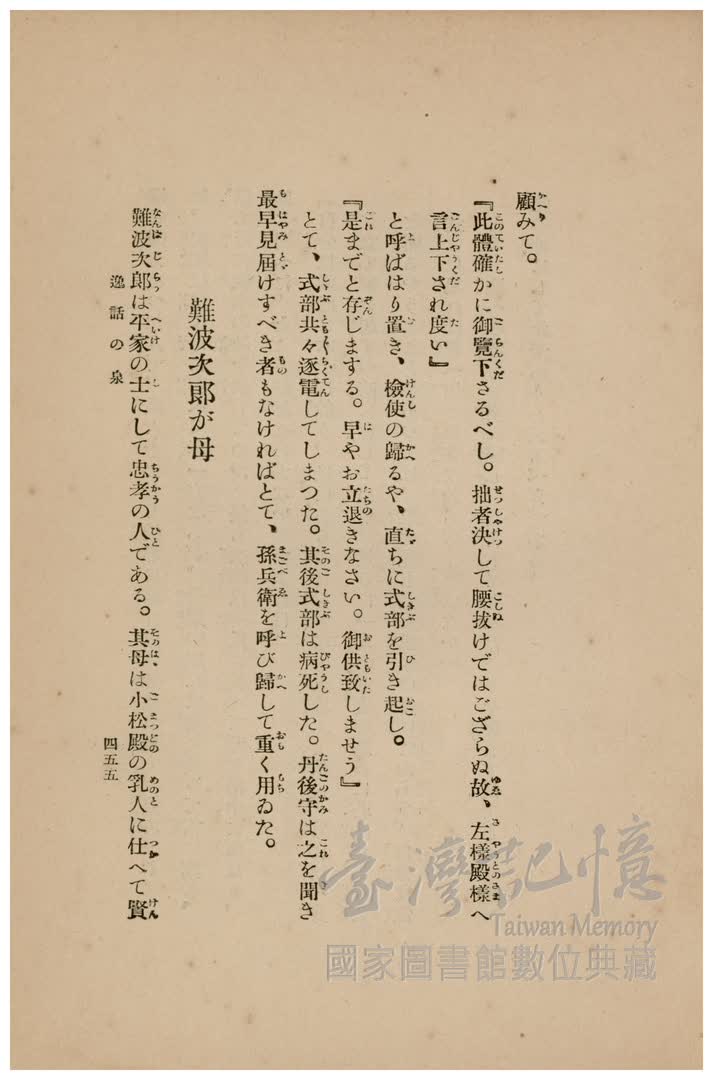 顧みて。
『此體確かに御覽下さるべし。拙者決して腰拔けではござらぬ故、左樣殿樣へ
言上下され度い』
と呼ばはり置き、檢使の歸るや、直ちに式部を引き起し。
『是までと存じまする。早やお立退きなさい。御供致しませう』
とて、式部共々逐電してしまつた。其後式部は病死した。丹後守は之を聞き
最早見屆けすべき者もなければとて、孫兵衛を呼び歸して重く用ゐた。
難波次郎が母
難波次郎は平家の士にして忠孝の人である。其母は小松殿の乳人に仕へて賢
逸話の泉
四五五
臺灣記憶
Taiwan Memory
國家圖書館數位典藏